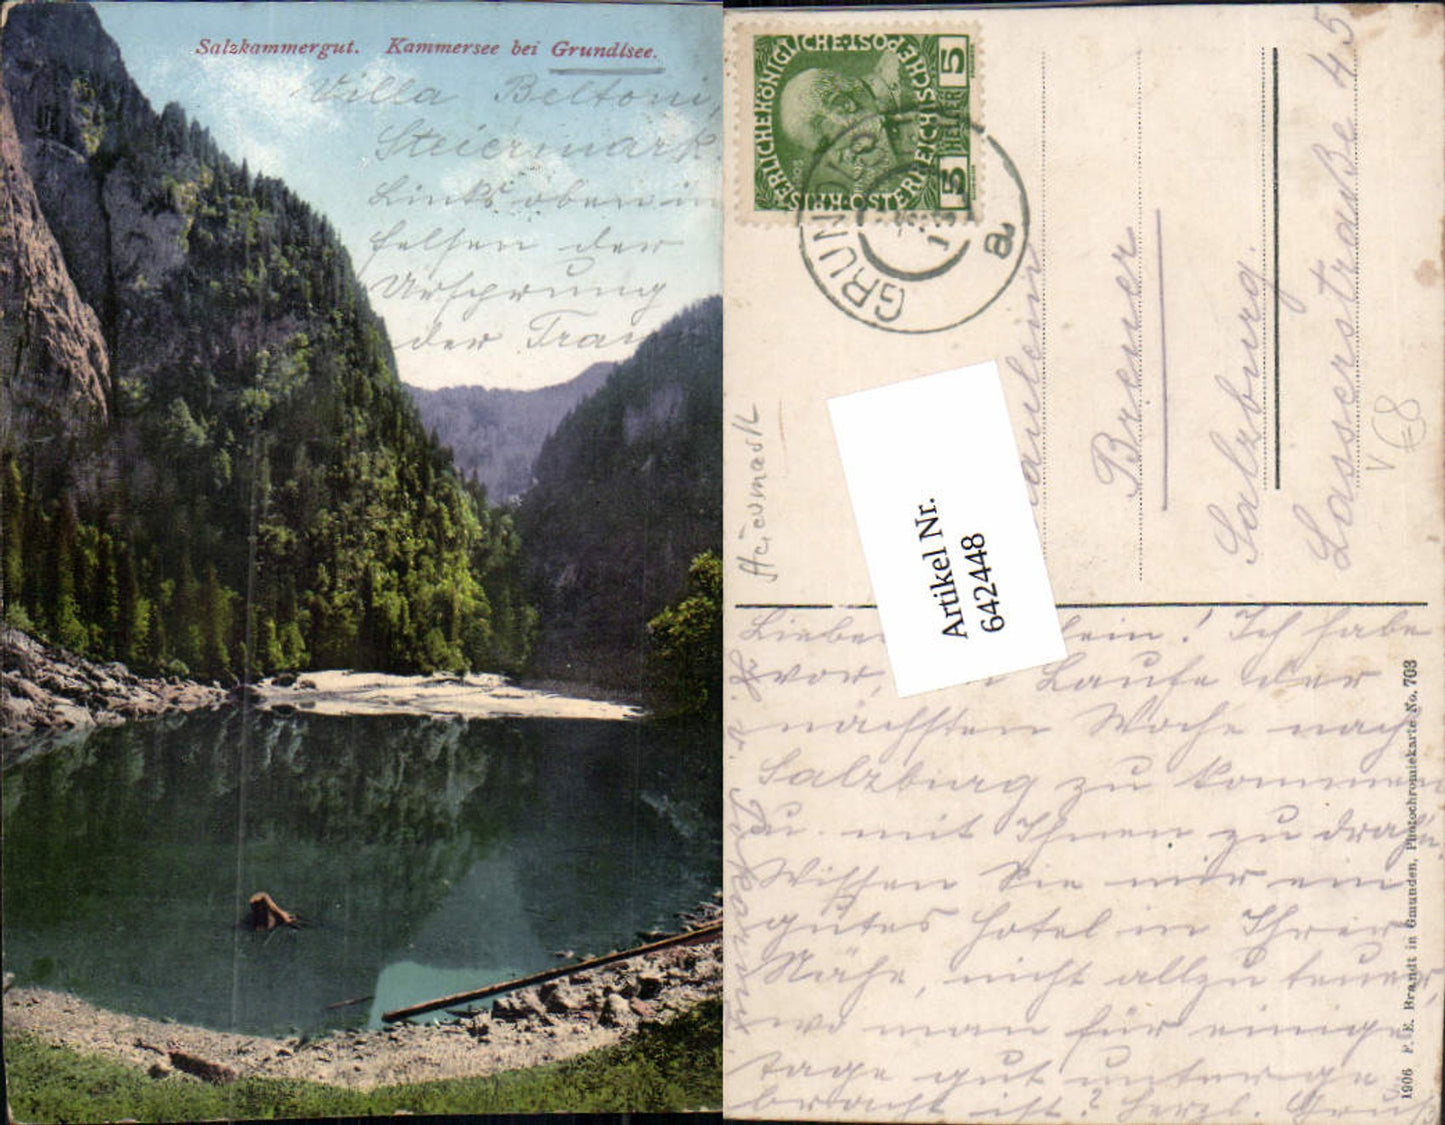 Salzkammergut. Kammersee bei Grundlsee.
Villa Bettoni,
Steiermark.
Links oben in
Felsen der
Ursprung
der Traun
KAISERLICHE KÖNIGLICHE ÖSTERREICHISCHE POST
5 HELLER 5
GRUN
a
Steiermark
Artikel Nr.
642448
Breuer
Salzburg.
Lasserstraße 45
V
€8
lein! Ich habe
vor, Laufe der
nächsten Woche nach
Salzburg zu kommen
u. mit Ihnen zu
Wissen Sie mir ein
gutes Hotel in Ihrer
Nähe, nicht allzu teuer,
wo man für einige
Tage gut unterge
bracht ist? Herzl. Gruß
1906 F. E. Brandt in Gmunden, Photochromiekarte No. 703